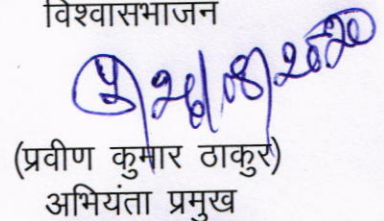 विश्वासभाजन
26/08/2020
(प्रवीण कुमार ठाकुर)
अभियंता प्रमुख